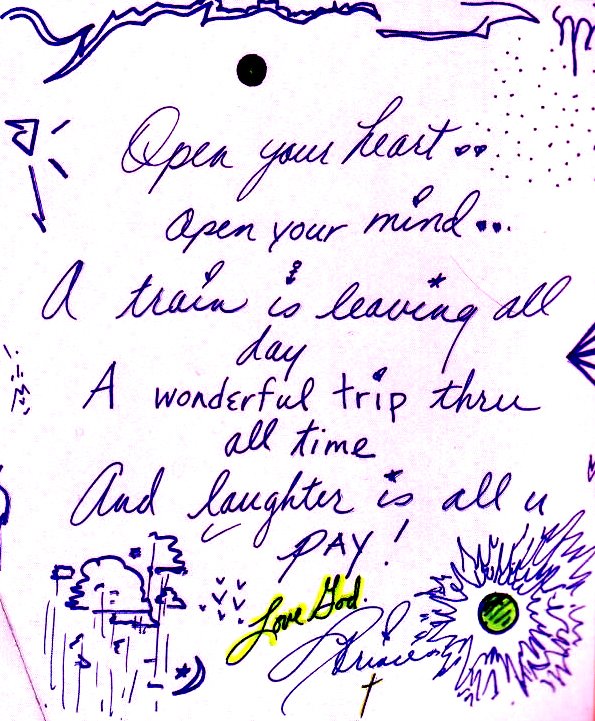 Open your heart..
open your mind...
A train is leaving all
day
A wonderful trip thru
all time
And laughter is all u
PAY!
Love God.
Prince